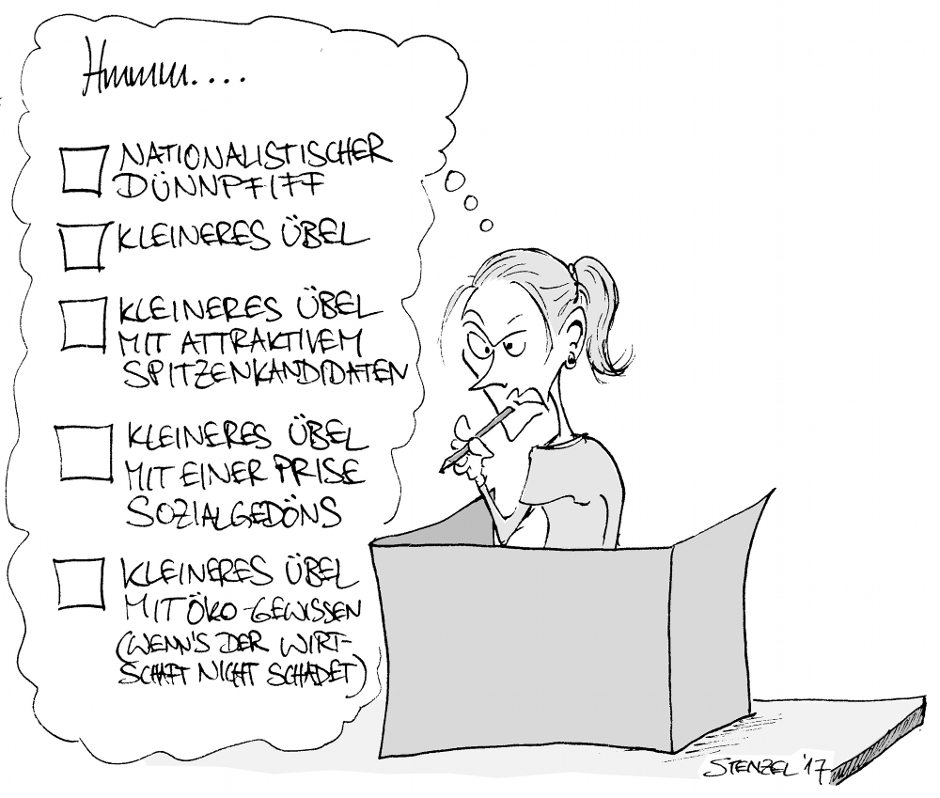 Hmmm....
NATIONALISTISCHER
DÜNNPFIFF
KLEINERES ÜBEL
KLEINERES ÜBEL
MIT ATTRAKTIVEM
SPITZENKANDIDATEN
KLEINERES ÜBEL
MIT EINER PRISE
SOZIALGEDÖNS
KLEINERES ÜBEL
MIT ÖKO-GEWISSEN
(WENN'S DER WIRT-
SCHAFT NICHT SCHADET)
STENZEL '17